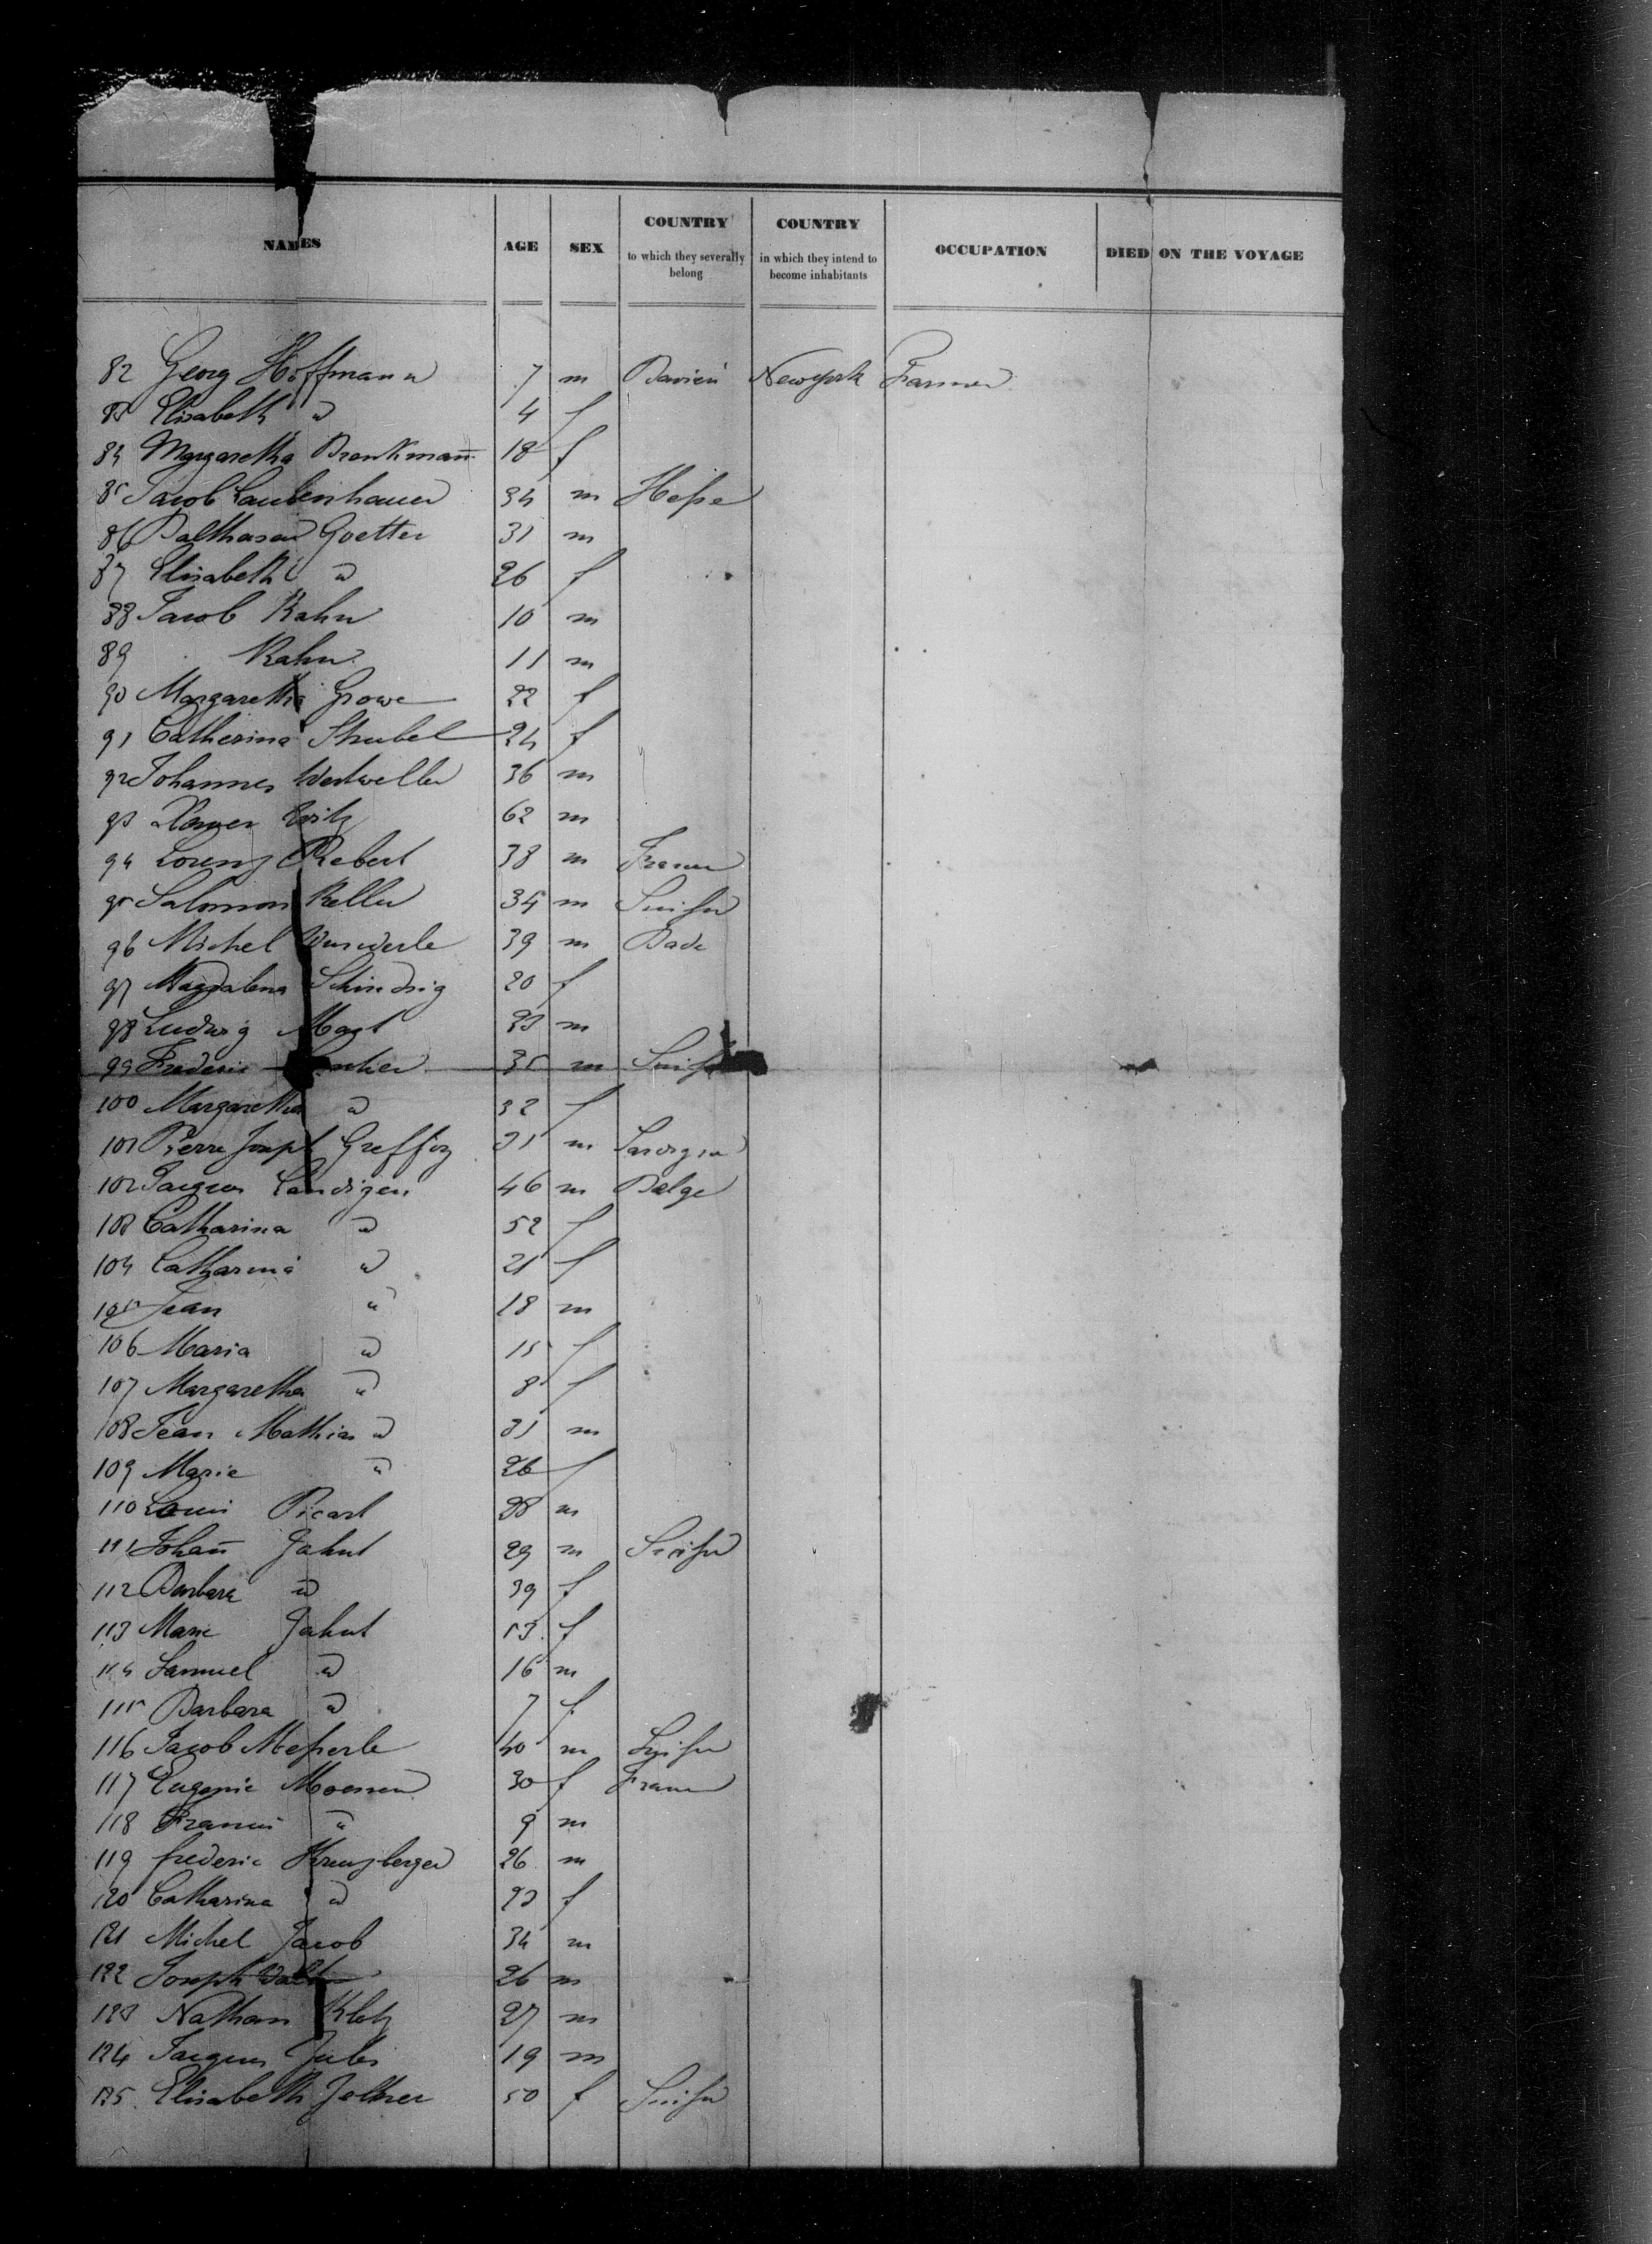 NAMES AGE SEX COUNTRY to which they severally belong COUNTRY in which they intend to become inhabitants OCCUPATION DIED ON THE VOYAGE
82 Georg Hoffmann 7 m New york Farmer
83 Elisabeth " 4 f
84 Margaretha 18 f
85 Jacob Laubenhauer 34 m Hesse
86 Balthasar Goetter 31 m
87 Elisabeth " 26 f
88 Jacob Kahn 10 m
89 Kahn 11 m
90 Margaretha Growe 22 f
91 Catherina Strubel 24 f
92 Johannes 36 m
93 62 m
94 Lorenz Rebert 38 m France
95 Salomon Keller 34 m Suisse
96 Michel 39 m Bade
97 Magdalena 20 f
98 Ludwig 23 m
99 Frederic 35 m Suisse
100 Margaretha " 32 f
101 Pierre Joseph 31 m
102 Jacques 46 m Belge
103 Catharina " 52 f
104 Catharina " 21 f
105 Jean " 18 m
106 Maria " 15 f
107 Margaretha " 8 f
108 Jean Mathias " 31 m
109 Marie " 26 f
110 Louis Picart 28 m
111 Johan̄ Jahut 29 m Suisse
112 Barbara " 39 f
113 Marie Jahut 13 f
114 Samuel " 16 m
115 Barbara " 7 f
116 Jacob Messerle 40 m Suisse
117 Eugenie 30 f France
118 Francois " 9 m
119 frederic Kreuzberger 26 m
120 Catharina " 23 f
121 Michel Jacob 34 m
122 Joseph 26 m
123 Nathan Klotz 27 m
124 Jacques Jules 19 m
125 Elisabeth 50 f Suisse